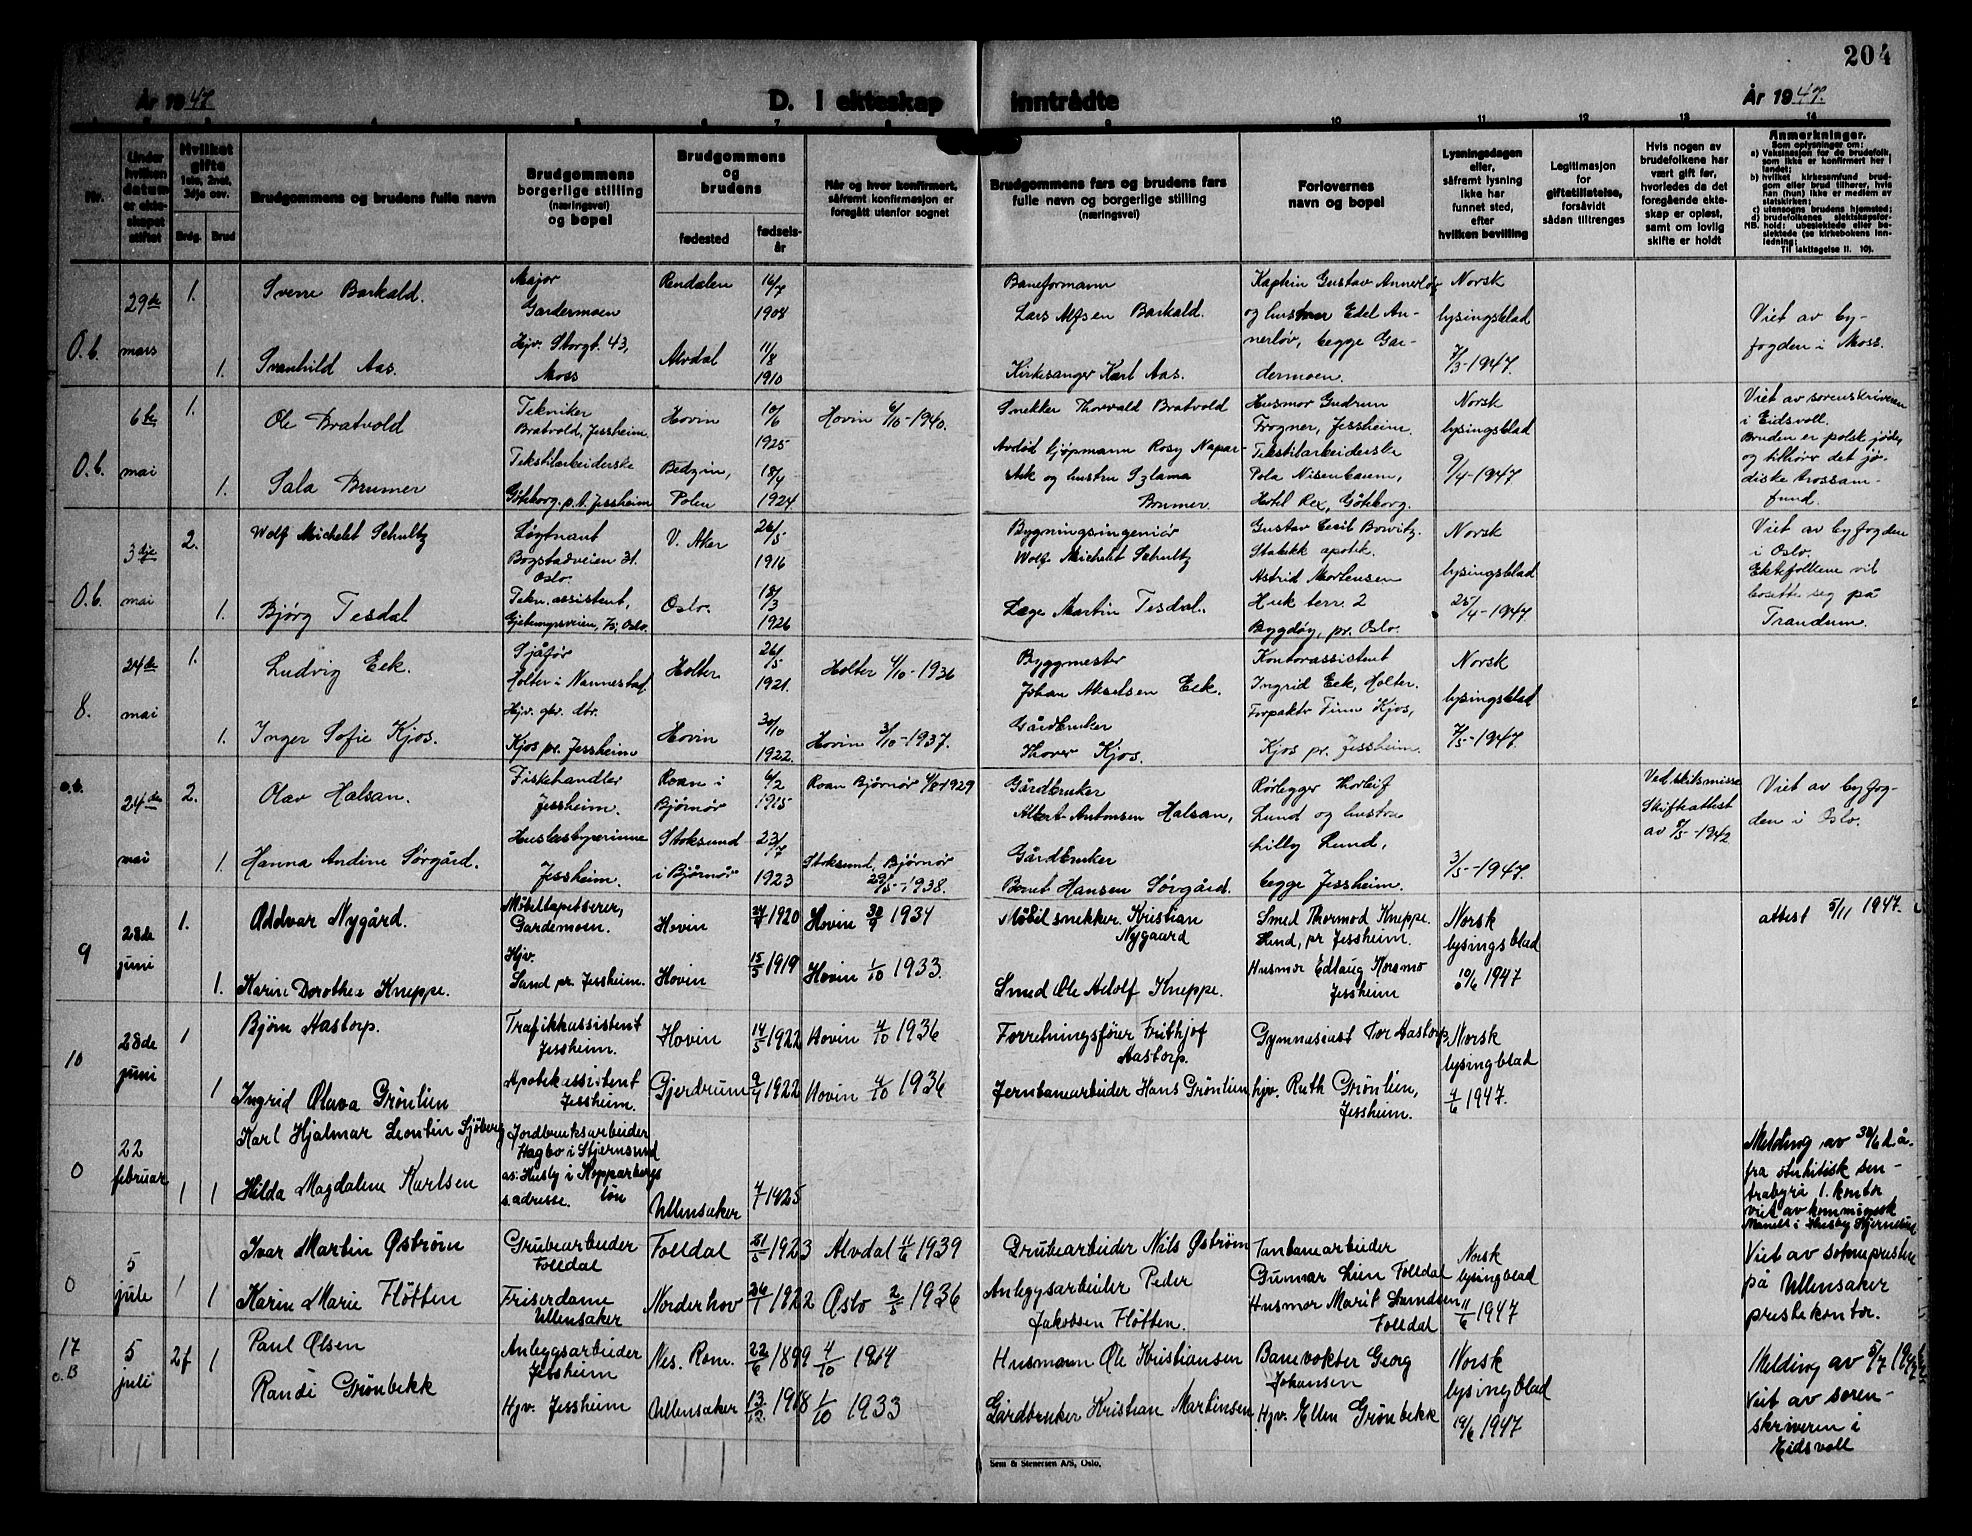 204
År 1947
D. I ekteskap
inntrådte
År 1947.
1 2 3 4 5 6 7 8 9 10 11 12 13 14
Nr.
Under
hvilken
datum
er ekte-
skapet
stiftet
Hvilket
gifte
1ste, 2net,
3dje osv.
Brdg.
Brud
Brudgommens og brudens fulle navn
Brudgommens
borgerlige stilling
(næringsvei)
og bopel
Brudgommens
og
brudens
fødested
fødsels-
år
Når og hvor konfirmert,
såfremt konfirmasjon er
foregått utenfor sognet
Brudgommens fars og brudens fars
fulle navn og borgerlige stilling
(næringsvei)
Forlovernes
navn og bopel
Lysningsdagen
eller,
såfremt lysning
ikke har
funnet sted,
efter
hvilken bevilling
Legitimasjon
for
giftetillatelse,
forsåvidt
sådan tiltrenges
Hvis nogen av
brudefolkene har
vært gift før,
hvorledes da det
foregående ekte-
skap er opløst,
samt om lovlig
skifte er holdt
Anmerkninger.
Som oplysninger om:
a) Vaksinasjon for de brudefolk,
som ikke er konfirmert her i
landet;
b) hvilket kirkesamfund brud-
gom eller brud tilhører, hvis
han (hun) ikke er medlem av
statskirken;
c) utensogns brudens hjemsted;
d) brudefolkenes slektskapsfor-
NB. hold: ubeslektede eller be-
slektede (se kirkebokens inn-
ledning;
Til iakttagelse II. 10).
O.b.
29de
mars
1.
Sverre Barkald.
Major
Gardermoen
Rendalen
16/7
1908
Baneformann
Lars Alfsen Barkald.
1.
Svanhild Aas.
Hjv. Storgt. 43,
Moss
Alvdal
11/8
1910
Kirkesanger Karl Aas.
Kaptein Gustav Annerløv
og hustru Edel An-
nerløv, begge Gar-
dermoen.
Norsk
lysingsblad
7/3-1947.
Viet av by-
fogden i Moss.
O.b.
6te
mai
1.
Ole Bratvold
Tekniker
Bratvold, Jessheim.
Hovin
10/6
1925
Hovin 6/10-1940.
Snekker Thorvald Bratvold
1.
Sala Brumer
Tekstilarbeiderske
Göteborg. p.t. Jessheim
Bedzin,
Polen
18/4
1924
Avdød kjøpmann Rosy Napar-
stek og hustru Szlama
Brumer.
Husmor Gudrun
Frogner, Jessheim.
Tekstilarbeiderske
Pola Nisenbaum,
Hotel Rex, Göteborg.
Norsk
lysingsblad
9/4-1947
Viet av sorenskriveren
i Eidsvoll.
Bruden er polsk jøde,
og tilhører det jø-
diske trossam-
fund.
O.b.
3dje
mai
2.
Wolf Michelet Schultz
Løytnant
Bogstadveien 31.
Oslo.
V. Aker
26/5
1916
Bygningsingeniør
Wolf Michelet Schultz
1.
Bjørg Tesdal
Tekn. assistent,
Gjetemyrsveien, 73, Oslo.
Oslo.
18/3
1926
Læge Martin Tesdal.
Gustav Cecil Borvitz.
Stabekk apotek.
Astrid Mortensen
Huk terr. 2
Bygdøy, pr. Oslo.
Norsk
lysingsblad
25/4-1947.
Viet av byfogden
i Oslo.
Ektefolkene vil
bosette seg på
Trandum.
8.
24de
mai
1.
Ludvig Eek.
Sjåfør
Holter i Nannestad.
Holter
26/5
1921.
Holter 4/10-1936
Byggmester
Johan Akselsen Eek.
1.
Inger Sofie Kjos.
Hjv. gbr. dtr.
Kjos pr. Jessheim
Hovin
30/10
1922.
Hovin 3/10-1937.
Gårdbruker
Thorer Kjos.
Kontorassistent
Ingrid Eek, Holter.
Forpakter Finn Kjos,
Kjos pr. Jessheim.
Norsk
lysingsblad
7/5-1947.
o.b.
24de
mai
2.
Olav Halsan.
Fiskehandler
Jessheim.
Roan i
Bjørnør
6/2
1915
Roan Bjørnør 4/8 1929
Gårdbruker
Albert Antonsen Halsan,
1.
Hanna Andine Sørgård.
Husbestyrerinne
Jessheim.
Stoksund
i Bjørnør
23/7
1923
Stoksund, Bjørnør
29/5-1938.
Gårdbruker
Bernt Hansen Sørgård.
Rørlegger Thorleif
Lund og hustru
Lilly Lund,
begge Jessheim.
3/5-1947.
Ved skilsmisse
Skifteattest
av 8/5-1942.
Viet av byfog-
den i Oslo.
9
28de
juni
1.
Oddvar Nygård.
Møbeltapetserer,
Gardemoen.
Hovin
27/7 1920
Hovin 30/9 1934
Møbilsnekker Kristian
Nygaard
1.
Karin Dorothea Kneppe.
Hjv.
Sand pr. Jessheim.
Hovin
15/5 1919
Hovin 1/10 1933.
Smed Ole Adolf Kneppe.
Smed Thormod Kneppe.
Sand, pr Jessheim.
Husmor Edlaug Korsmo
Jessheim
Norsk
lysingsblad
10/6 1947
attest 5/11 1947.
10
28de
juni
1
Bjørn Aastorp.
Trafikkassistent
Jessheim.
Hovin
14/5 1922
Hovin 4/10 1936
Forretningsfører Frithjof
Aastorp.
1
Ingrid Olava Grønlien
Apotekassistent
Jessheim.
Gjerdrum
9/4 1922
Hovin 4/10 1936
Jernbanearbeider Hans Grønlien
Gymnasiast Tor Aastorp,
hjv. Ruth Grønlien,
Jessheim.
Norsk
lysingblad
4/6 1947.
0
22
februar
1
1
Karl Hjalmar Leontin Sjöberg
Jordbruksarbeider
Hagbo i Stjernsund
as: Husby i Kopparbergs
s. adresse. län
Hilda Magdalene Karlsen
Ullensaker
4/7 1925
Melding av 30/6 d.å.
fra statistisk sen-
tralbyrå 1. kontor
viet av kommunisk
i Husby Stjernsund
0
5
jule
1
1
Ivar Martin Østrøm
Grubearbeider
Folldal
Folldal
21/5 1923
Alvdal 11/6 1939
Grubearbeider Nils Østrøm
Karin Marie Fløtten
Friserdame
Ullensaker
Norderhov
26/1 1922
Oslo 2/5 1936
Anleggsarbeider Peder
Jakobsen Fløtten.
Tanbanearbeider
Gunnar Lien Folldal
Husmor Marit Lamdsen
Folldal
Norsk
lysingblad
11/6 1947
Viet av sokneprestene
på Ullensaker
prestekontor.
17
o.B
5
juli
2f
1
Paul Olsen
Anleggsarbeider
Jessheim
Nes. Rom.
22/6 1899
4/10 1914
Husmann Ole Kristiansen
Randi Grønbekk
Hjv. Jessheim
Ullensaker
13/12 1918
1/10 1933
Gårdbruker Kristian Martinsen
Banevokter Georg
Johansen
Hjv. Ellen Grønbekk
Norsk
lysingblad
19/6 1947
Melding av 5/7 1947
Viet av soren-
skriveren i
Eidsvoll
Sem & Stenersen A/S, Oslo.